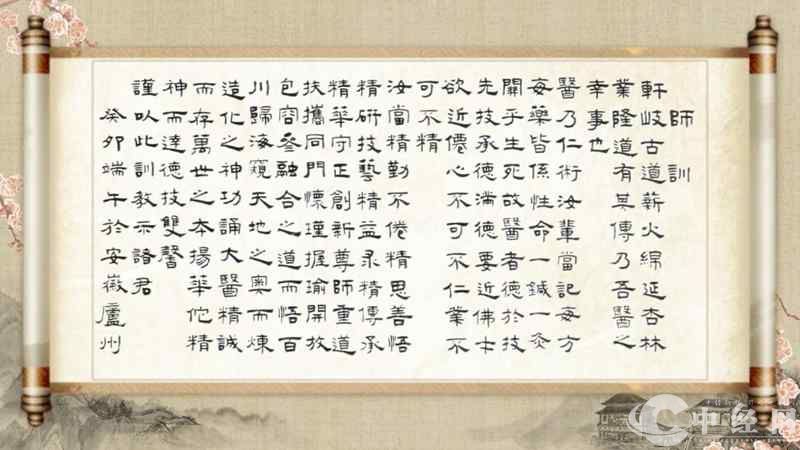 師訓
軒岐古道薪火綿延杏林
業隆道有其傳乃吾醫之
幸事也
醫乃仁術汝輩當記每方
每藥皆係性命一鍼一灸
關乎生死故醫者德於技
先技承德滿德要近佛士
欲近僊心不可不仁業不
可不精
汝當精勤不倦精思善悟
精研技藝精益求精傳承
精華守正創新尊師重道
扶攜同門懷瑾握瑜開放
包容叅融合之道而悟百
川歸海窺天地之奧而煉
造化之神功誦大醫精誠
而存萬世之本揚華佗精
神而達德技雙馨
謹以此訓教示諸君
癸卯端午於安徽廬州
中经网